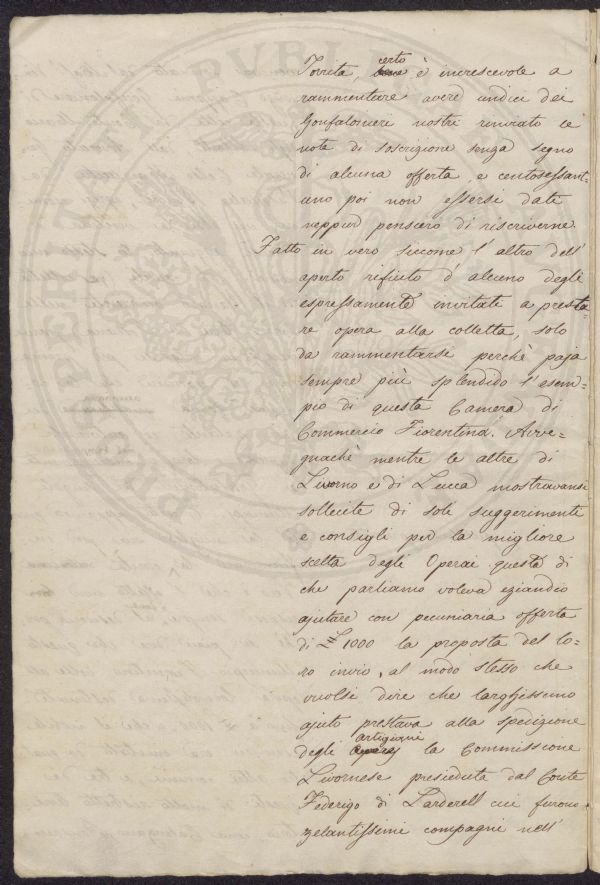 certo
Torrita, bene è increscevole a
rammentare avere undici dei
Gonfalonieri nostri rinviato le
note di soscrizione senza segno
di alcuna offerta, e centosessant=
uno poi non essersi dati
neppur pensiero di riscriverne.
Fatto in vero siccome l'altro dell'
aperto rifiuto d'alcuno degli
espressamente invitati a presta=
re opera alla colletta, solo
da rammentarsi perchè paja
sempre più splendido l'esem=
pio di questa Camera di
Commercio Fiorentina. Avve=
gnachè mentre le altre di
Livorno e di Lucca mostravansi
sollecite di soli suggerimenti
e consigli per la migliore
scelta degli Operai questa di
che parliamo voleva eziandio
ajutare con pecuniaria offerta
di £ 1000 la proposta del lo=
ro invio, al modo stesso che
vuolsi dire che larghissimo
ajuto prestava alla spedizione
artigiani
degli la Commissione
Livornese presieduta dal Conte
Federigo di Larderell cui furono
zelantissimi compagni nell'